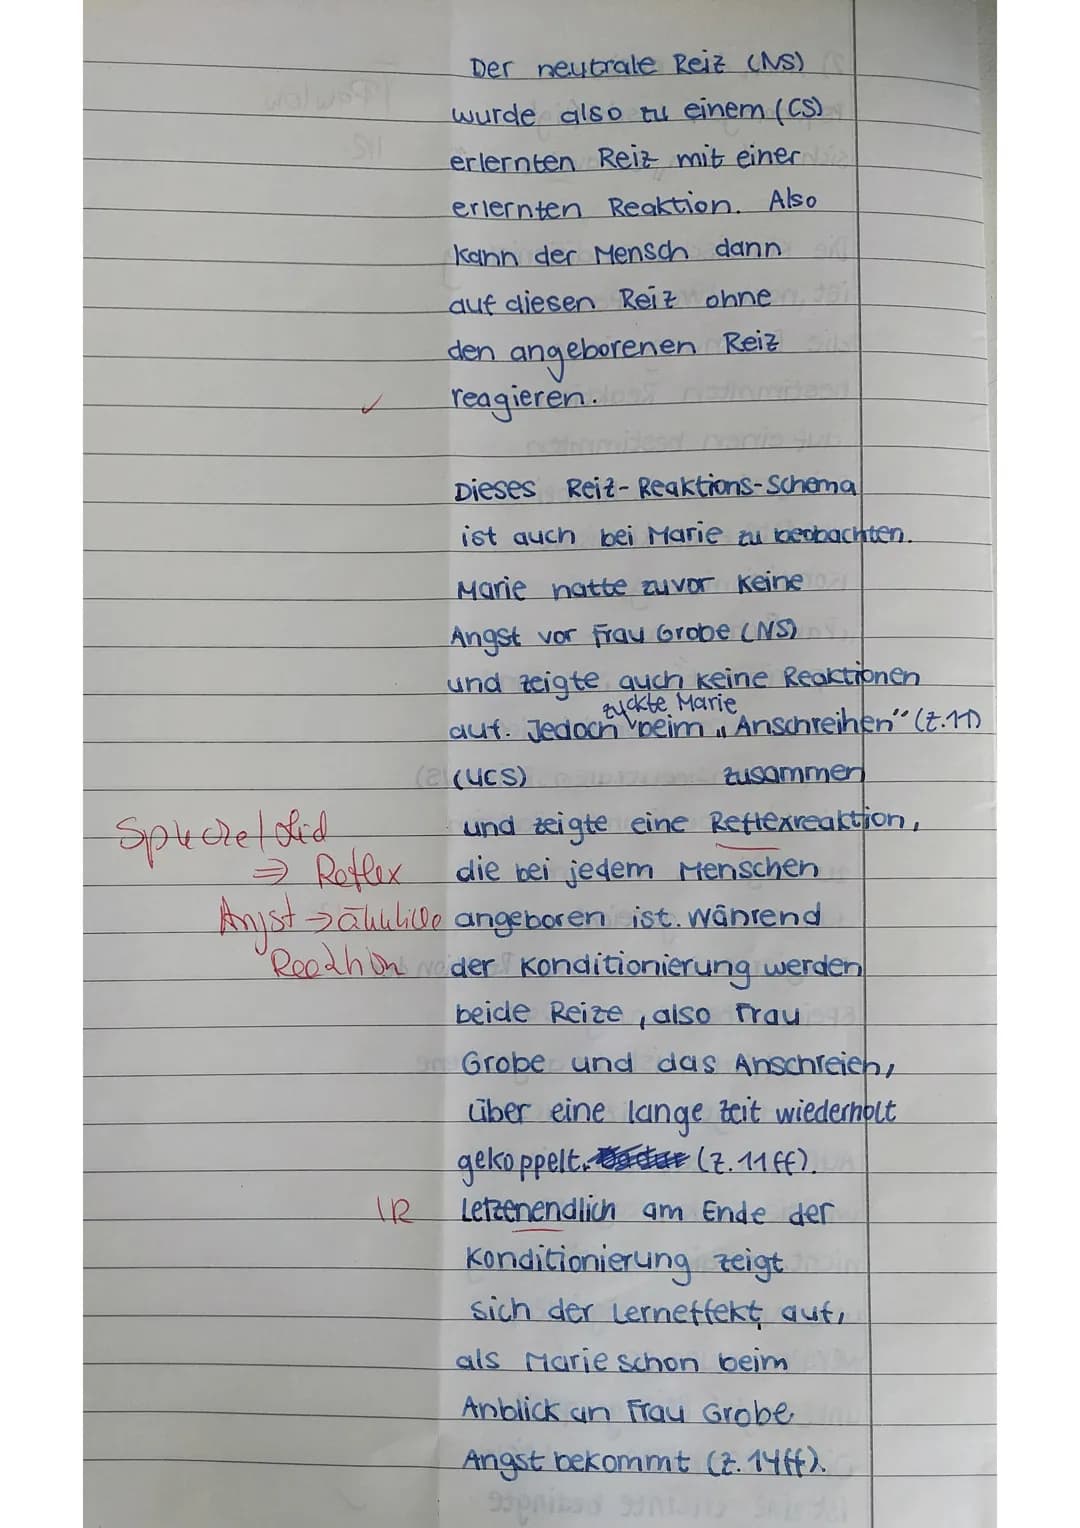 Der neutrale Reiz (NS)
wurde also zu einem (CS)
erlernten Reiz mit einer
erlernten Reaktion. Also
kann der Mensch dann
auf diesen Reiz ohne
den angeborenen Reiz
reagieren.
Dieses Reiz-Reaktions-Schema
ist auch bei Marie zu beobachten.
Marie hatte zuvor keine
Angst vor Frau Grobe (NS)
und zeigte auch keine Reaktionen
zuckte Marie
auf. Jedoch beim „Anschreihen" (Z.11)
(UCS) zusammen
und zeigte eine Reflexreaktion,
⇒ Reflex
die bei jedem Menschen
Angst → ähnliche
angeboren ist. Während
Reaktion
der Konditionierung werden
beide Reize, also Frau
Grobe und das Anschreien,
über eine lange Zeit wiederholt
gekoppelt. (Z.11ff).
IR
Letzenendlich am Ende der
Konditionierung zeigt
sich der Lerneffekt auf,
als Marie schon beim
Anblick an Frau Grobe
Angst bekommt (Z.14ff).